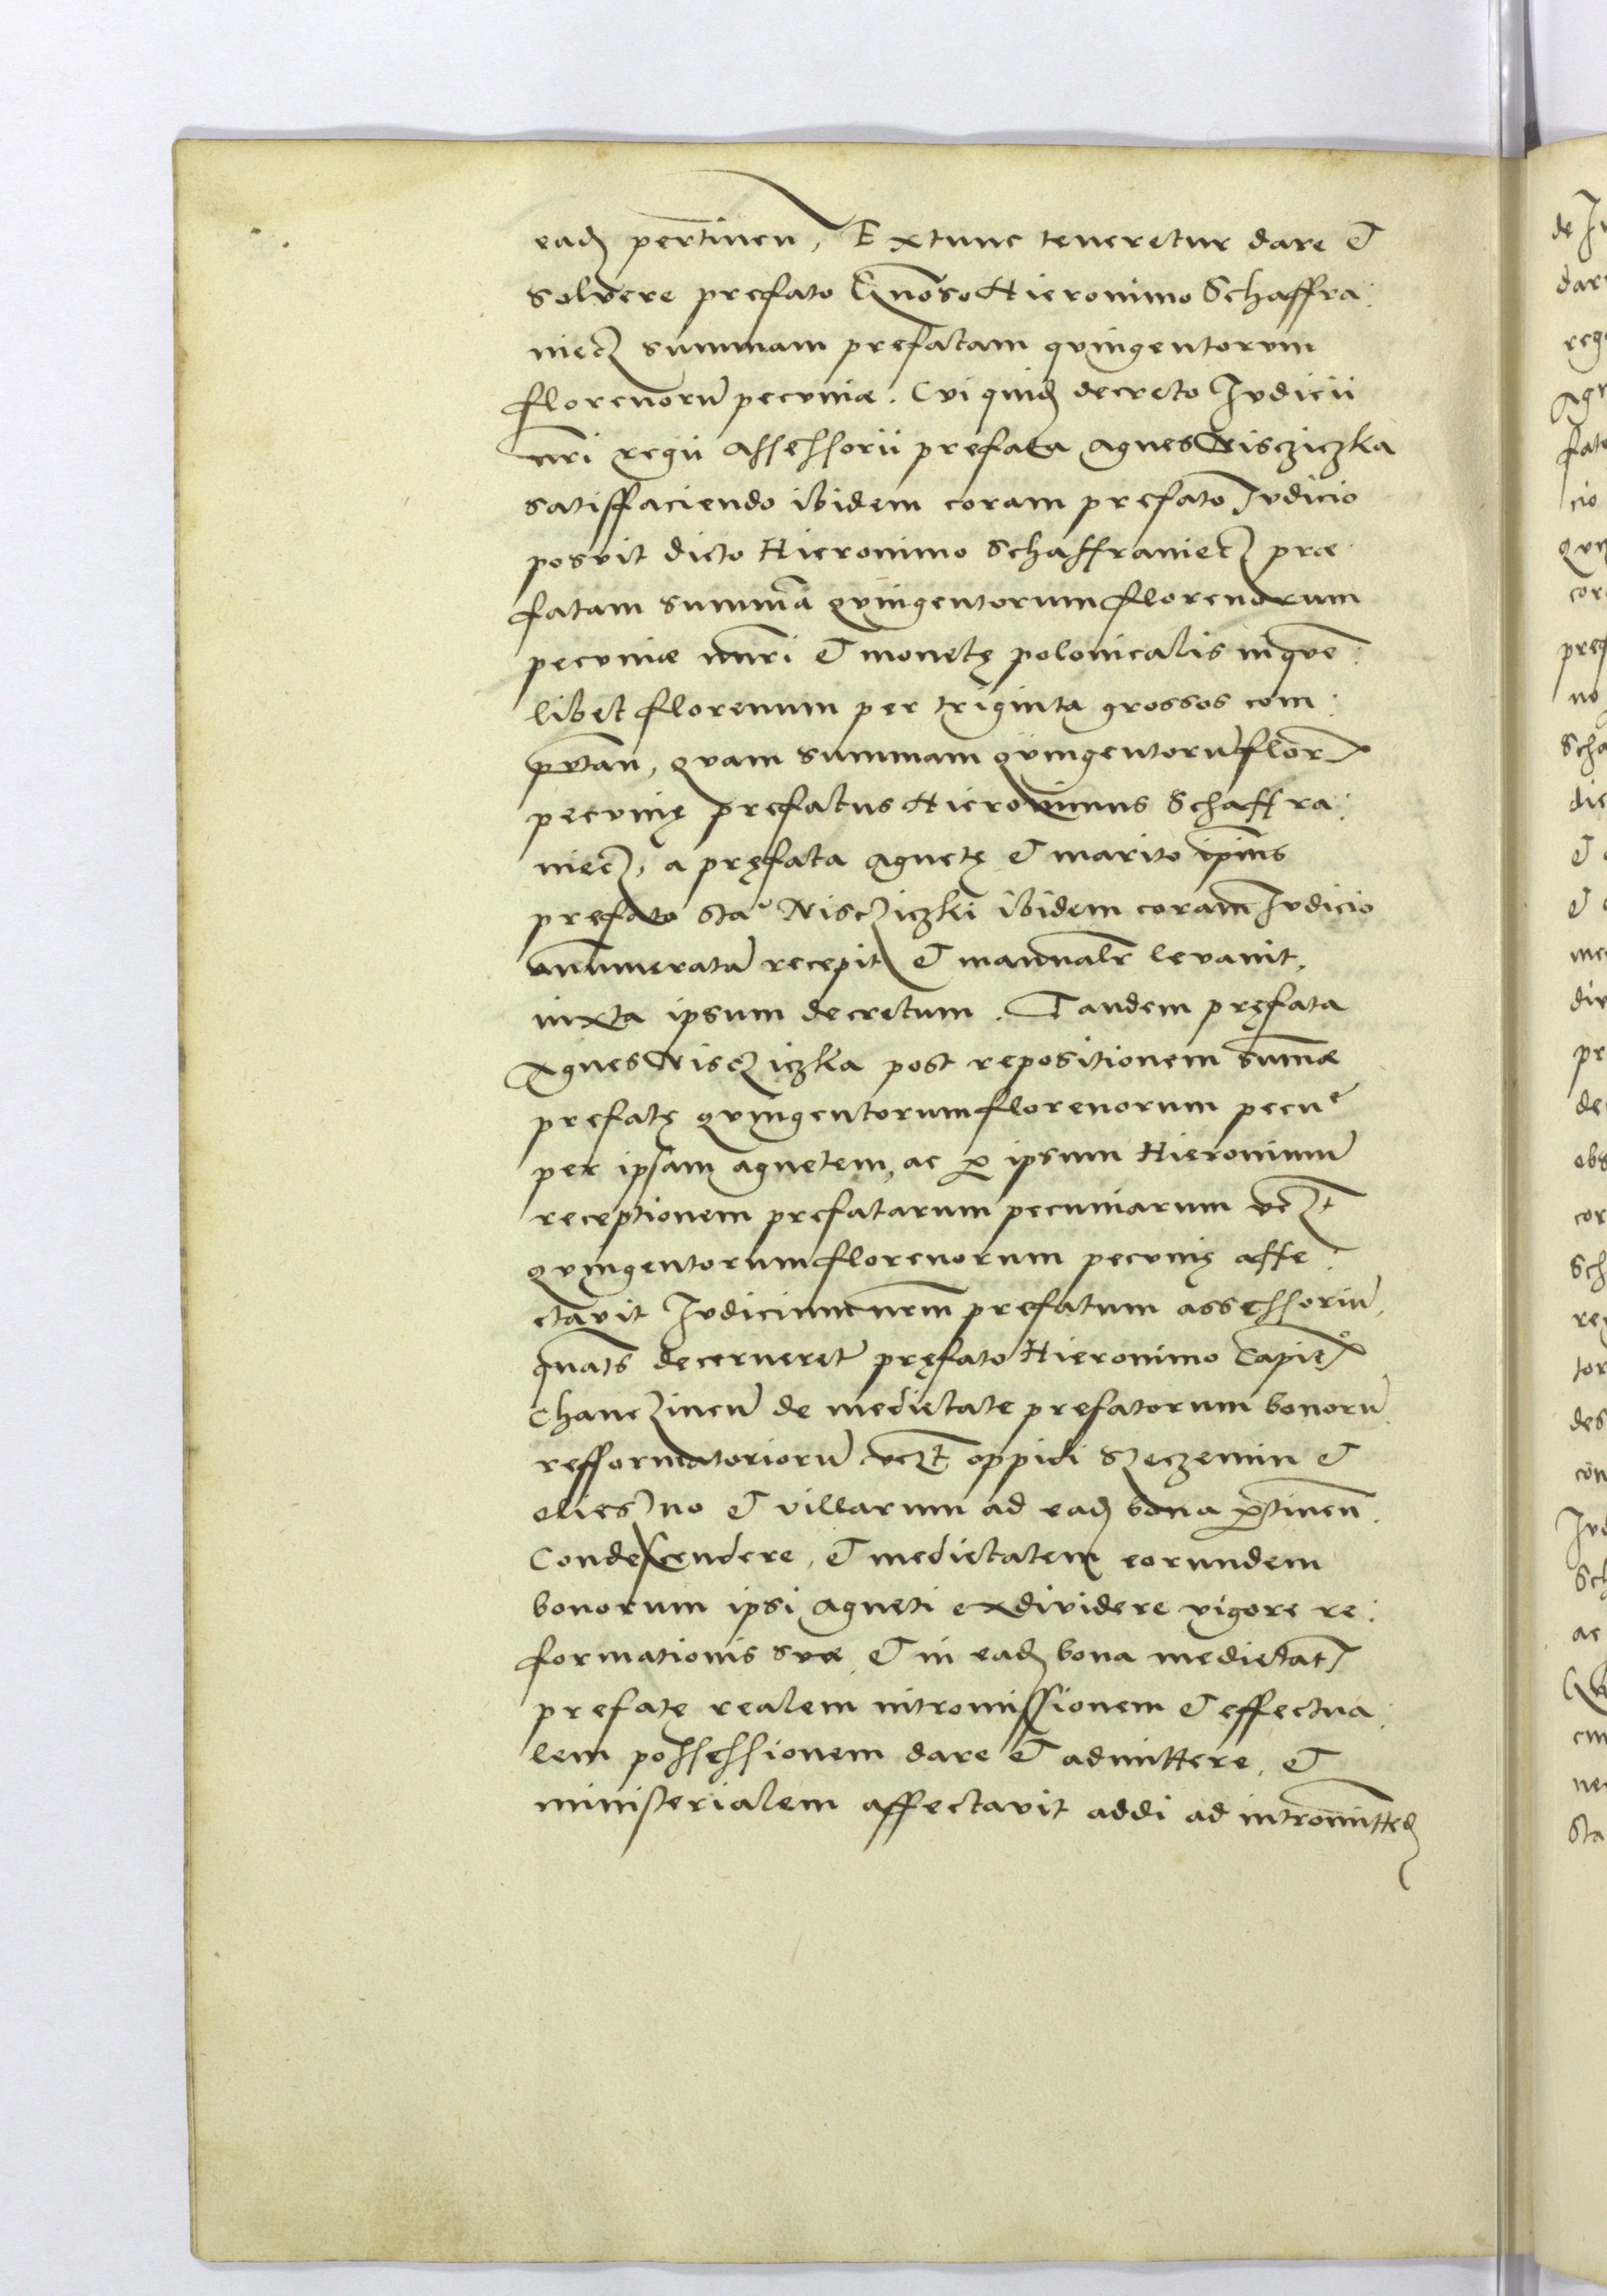 eadẽ pertinen̄, Extunc teneretur dare et
solvere prefato Gn̄oso Hieronimo Schaffra:
niecz summam prefatam quingentorum
florenorū pecuniæ. Cui quidẽ decreto Iudicii
nr̄i regii assessorii prefata Agnes Niscziczka
satisffaciendo ibidem coram prefato Iudicio
posuit dicto Hieronimo Schaffraniecz præ
fatam summā quingentorum florenorum
pecuniæ nūri et monetę polonicalis in quē:
libet florenum per triginta grossos com:
putan̄, quam summam quingentorū flor
pecunię prefatus Hieronimus Schaffra:
niecz, a pręfata Agnetę et marito ipsius
prefato Sta: Niscziczki ibidem coram Iudicio
annumeratā recepit et manualr̄ levavit,
iuxta ipsum decretum. Tandem pręfata
Agnes Niscziczka post repositionem summæ
prefatę quingentorum florenorum pecuē
per ipsam Agnetem, ac p ipsum Hieronimū
receptionem prefatarum pecuniarum vczt
quingentorum florenorum pecunię affe:
ctavit Iudicium nr̄m prefatum assessoriū,
quats̄ decerneret pręfato Hieronimo Capiteo
Chanczinen̄ de medietate prefatorum bonorū
refformatoriorū vczt oppidi Szeczemin et
Oliesno et villarum ad eadẽ bona ptinen̄.
Condescendere, et medietatem eorundem
bonorum ipsi Agneti exdividere vigore re:
formationis suæ et in eadẽ bona medietat
prefatę realem intromissionem et effectua:
lem possessionem dare et admittere, et
ministerialem affectavit addi ad intromittẽd